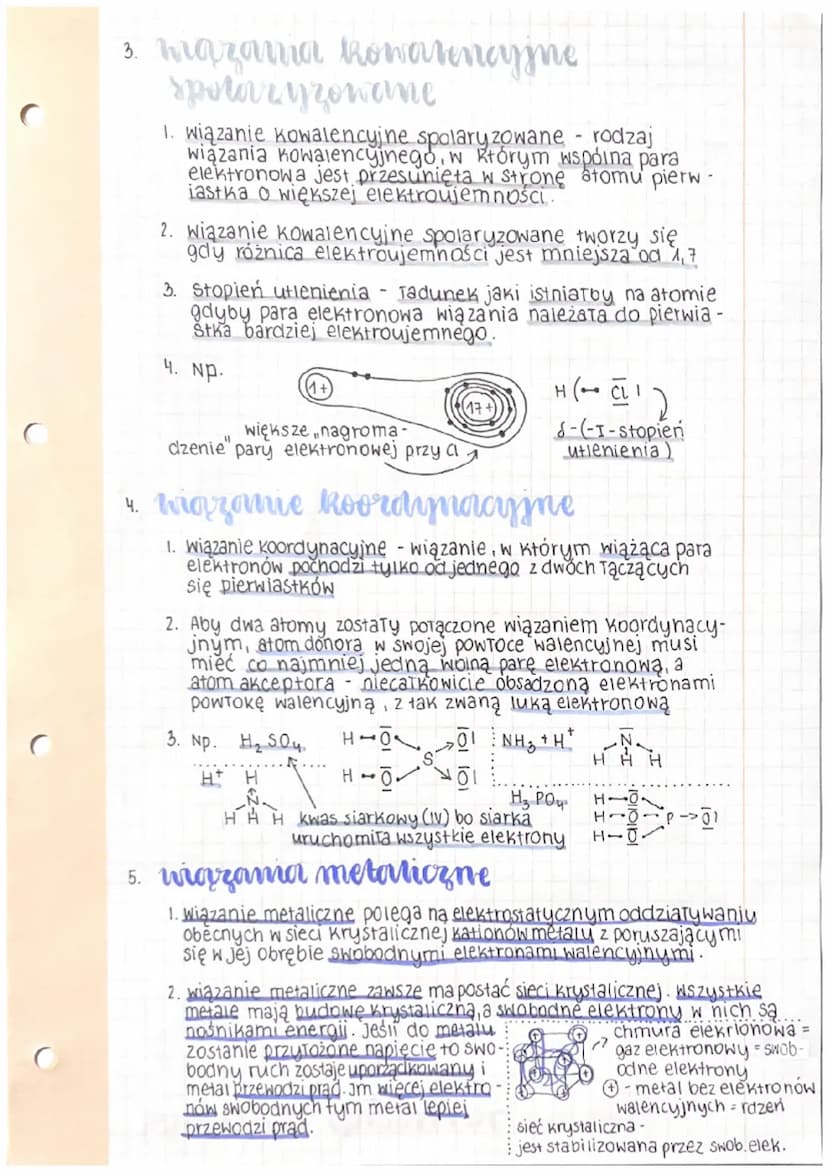 3. wiązania kowalencyjne
spolaryzowane
1. Wiązanie kowalencyjne spolaryzowane - rodzaj
wiązania kowalencyjnego, w którym wspólna para
elektronowa jest przesunięta w stronę atomu pierw-
iastka o większej elektroujemności.
2. Wiązanie kowalencyjne spolaryzowane tworzy się
gdy różnica elektroujemności jest mniejsza od 1,7
3. Stopień utlenienia - ładunek jaki istniałby na atomie
gdyby para elektronowa wiązania należała do pierwia-
stka bardziej elektroujemnego.
4. Np.
1+
17+
H Cl
większe „nagroma-
dzenie" pary elektronowej przy Cl
δ-(-I-stopień
utlenienia)
4. wiązanie koordynacyjne
1. Wiązanie koordynacyjne - wiązanie, w którym wiążąca para
elektronów pochodzi tylko od jednego z dwóch łączących
się pierwiastków
2. Aby dwa atomy zostały połączone wiązaniem koordynacy-
jnym, atom donora w swojej powłoce walencyjnej musi
mieć co najmniej jedną wolną parę elektronową, a
atom akceptora - niecałkowicie obsadzoną elektronami
powłokę walencyjną, z tak zwaną luką elektronową
3. Np. H₂SO₄
H-O O
S
H-O O
NH₃ + H⁺
N
H H H
H⁺ H
N
H H H
kwas siarkowy (IV) bo siarka
uruchomiła wszystkie elektrony
H₃PO₄
H-O
H-O-P->O
H-O
5. wiązania metaliczne
1. Wiązanie metaliczne polega na elektrostatycznym oddziaływaniu
obecnych w sieci krystalicznej kationów metalu z poruszającymi
się w jej obrębie swobodnymi elektronami walencyjnymi.
2. Wiązanie metaliczne zawsze ma postać sieci krystalicznej. Wszystkie
metale mają budowę krystaliczną, a swobodne elektrony w nich są
nośnikami energii. Jeśli do metalu
zostanie przyłożone napięcie to swo-
bodny ruch zostaje uporządkowany i
metal przewodzi prąd. Im więcej elektro-
nów swobodnych tym metal lepiej
przewodzi prąd.
chmura elektronowa =
gaz elektronowy = swob-
odne elektrony
⊕ - metal bez elektronów
walencyjnych = rdzeń
sieć krystaliczna -
jest stabilizowana przez swob. elek.